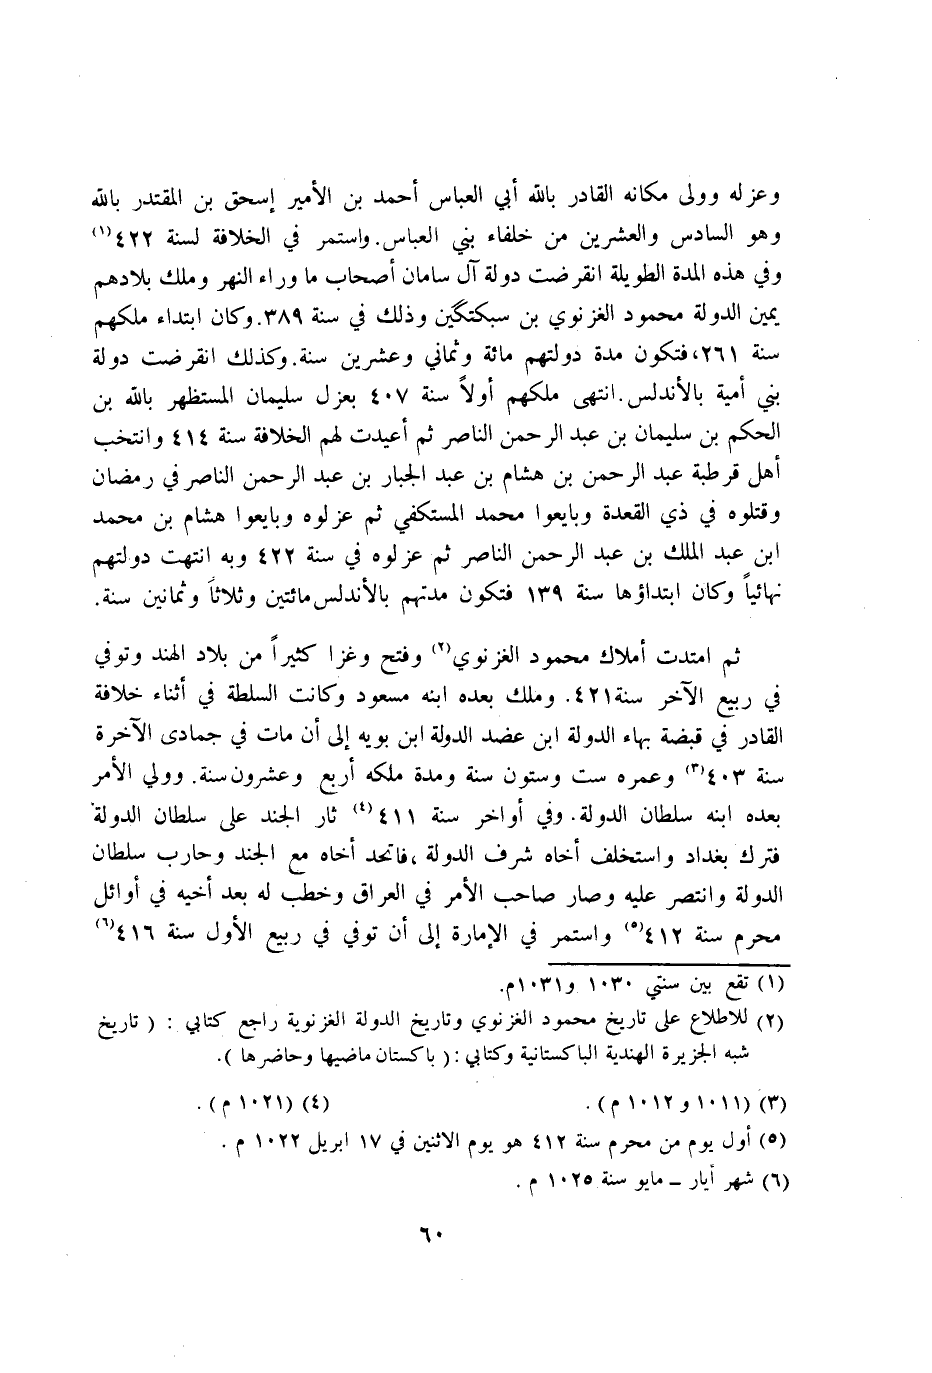 وعزله وولى مكانه القادر بالله أبي العباس أحمد بن الأمير إسحق بن المقتدر بالله
وهو السادس والعشرين من خلفاء بني العباس. واستمر في الخلافة لسنة ٤٢٢(١)
وفي هذه المدة الطويلة انقرضت دولة آل سامان أصحاب ما وراء النهر وملك بلادهم
يمين الدولة محمود الغزنوي بن سبكتگين وذلك في سنة ٣٨٩. وكان ابتداء ملكهم
سنة ٢٦١، فتكون مدة دولتهم مائة وثماني وعشرين سنة. وكذلك انقرضت دولة
بني أمية بالأندلس. انتهى ملكهم أولاً سنة ٤٠٧ بعزل سليمان المستظهر بالله بن
الحكم بن سليمان بن عبد الرحمن الناصر ثم أعيدت لهم الخلافة سنة ٤١٤ وانتخب
أهل قرطبة عبد الرحمن بن هشام بن عبد الجبار بن عبد الرحمن الناصر في رمضان
وقتلوه في ذي القعدة وبايعوا محمد المستكفي ثم عزلوه وبايعوا هشام بن محمد
ابن عبد الملك بن عبد الرحمن الناصر ثم عزلوه في سنة ٤٢٢ وبه انتهت دولتهم
نهائياً وكان ابتداؤها سنة ١٣٩ فتكون مدتهم بالأندلس مائتين وثلاثاً وثمانين سنة.
ثم امتدت أملاك محمود الغزنوي(٢) وفتح وغزا كثيراً من بلاد الهند وتوفي
في ربيع الآخر سنة ٤٢١. وملك بعده ابنه مسعود وكانت السلطة في أثناء خلافة
القادر في قبضة بهاء الدولة ابن عضد الدولة ابن بويه إلى أن مات في جمادى الآخرة
سنة ٤٠٣(٣) وعمره ست وستون سنة ومدة ملكه أربع وعشرون سنة. وولي الأمر
بعده ابنه سلطان الدولة. وفي أواخر سنة ٤١١(٤) ثار الجند على سلطان الدولة
فترك بغداد واستخلف أخاه شرف الدولة، فاتحد أخاه مع الجند وحارب سلطان
الدولة وانتصر عليه وصار صاحب الأمر في العراق وخطب له بعد أخيه في أوائل
محرم سنة ٤١٢(٥) واستمر في الإمارة إلى أن توفي في ربيع الأول سنة ٤١٦(٦)
(١) تقع بين سنتي ١٠٣٠ و١٠٣١م.
(٢) للاطلاع على تاريخ محمود الغزنوي وتاريخ الدولة الغزنوية راجع كتابي : ( تاريخ
شبه الجزيرة الهندية الباكستانية وكتابي : ( باكستان ماضيها وحاضرها ).
(٣) (١٠١١ و ١٠١٢ م ). (٤) (١٠٢١ م ).
(٥) أول يوم من محرم سنة ٤١٢ هو يوم الاثنين في ١٧ ابريل ١٠٢٢ م .
(٦) شهر أيار – مايو سنة ١٠٢٥ م .
٦٠